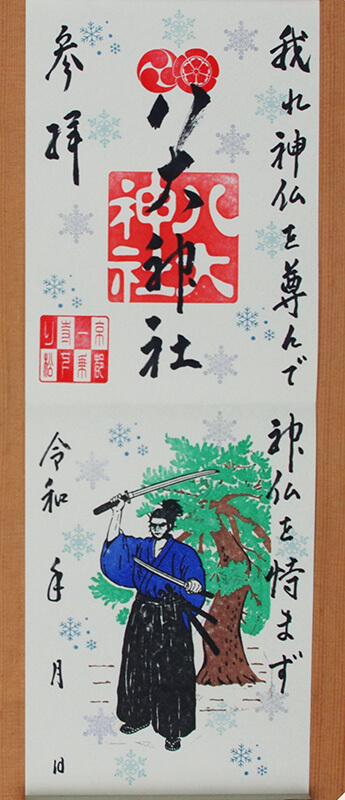 我れ神仏を尊んで
神仏を恃まず
八大神社
八大神社
参拝
京都一乗寺下り松
令和 年 月 日